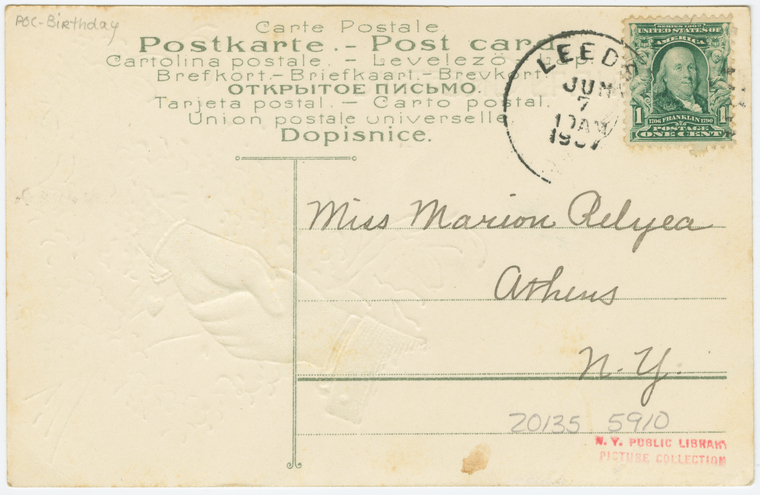 POC-Birthday
Carte Postale
Postkarte. - Post card
Cartolina postale. - Levelező
Brefkort. - Briefkaart. - Brevkort
ОТКРЫТОЕ ПИСЬМО.
Tarjeta postal. - Carto postal.
Union postale universelle
Dopisnice.
LEEDS
JUN
7
10AM
1907
SERIES 1902
UNITED STATES OF
AMERICA
1706 FRANKLIN 1790
1 1
POSTAGE
ONE CENT
Miss Marion Relyea
Athens
N.Y.
20135 5910
N. Y. PUBLIC LIBRARY
PICTURE COLLECTION